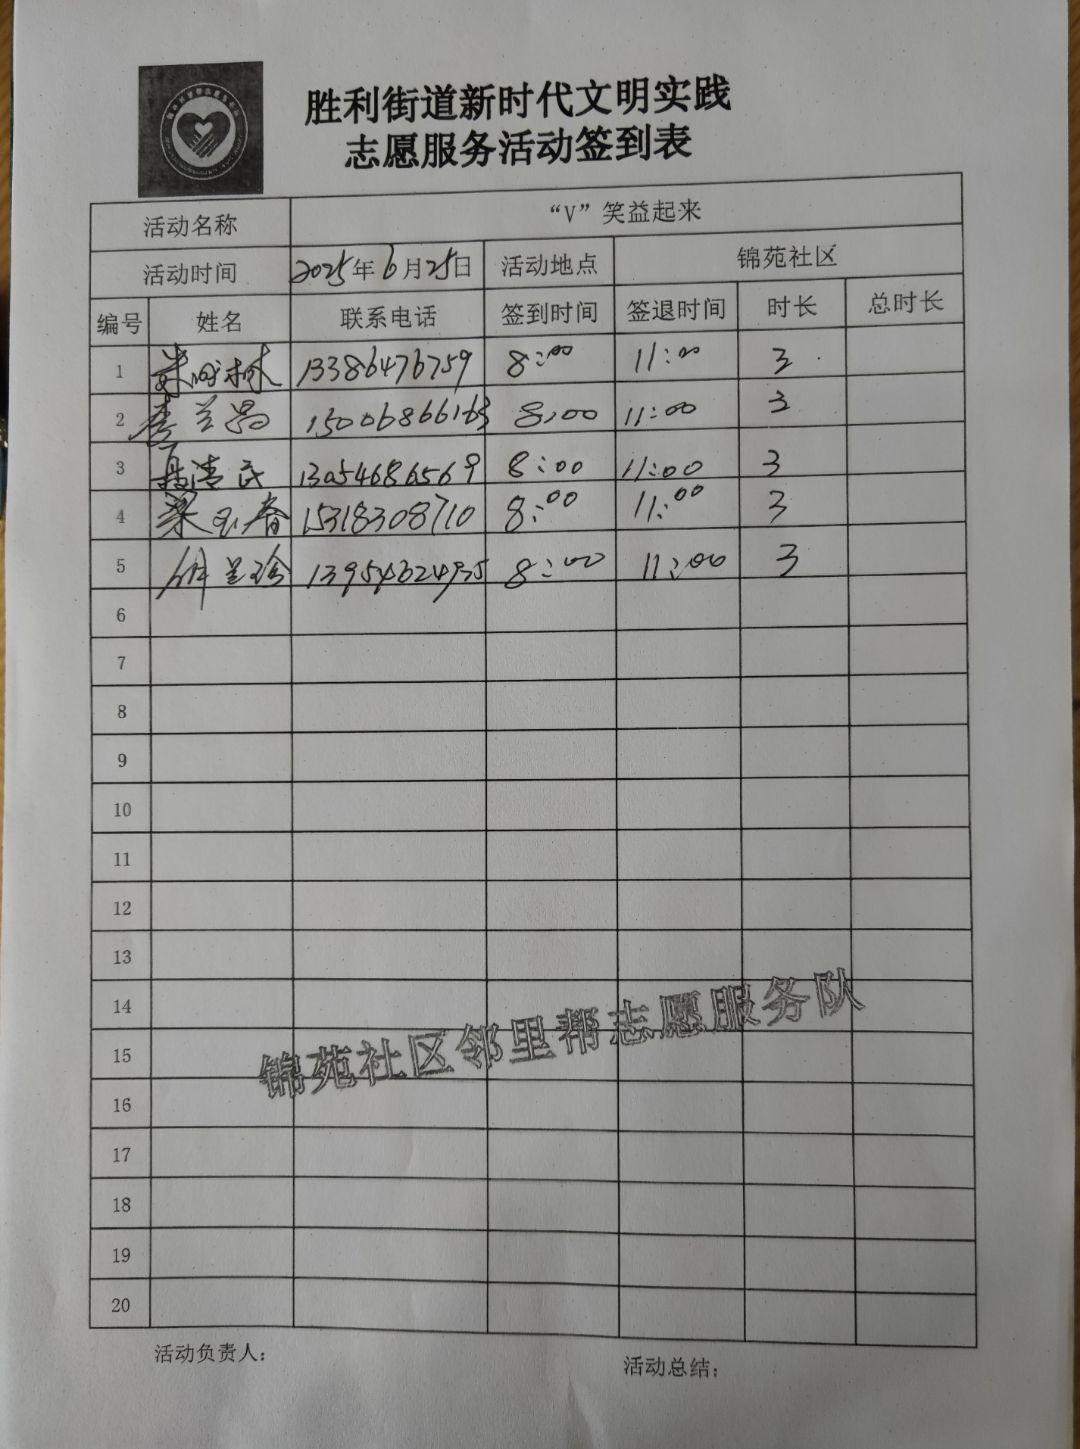 胜利街道新时代文明实践
志愿服务活动签到表
活动名称 “V”笑益起来
活动时间 2025年6月25日 活动地点 锦苑社区
编号 姓名 联系电话 签到时间 签退时间 时长 总时长
1 13386476759 8:00 11:00 3
2 李兰昌 15006866163 8:00 11:00 3
3 聂清民 13054686569 8:00 11:00 3
4 梁玉春 15318308710 8:00 11:00 3
5 13954624935 8:00 11:00 3
6
7
8
9
10
11
12
13
14
15
16
17
18
19
20
锦苑社区邻里帮志愿服务队
活动负责人: 活动总结: